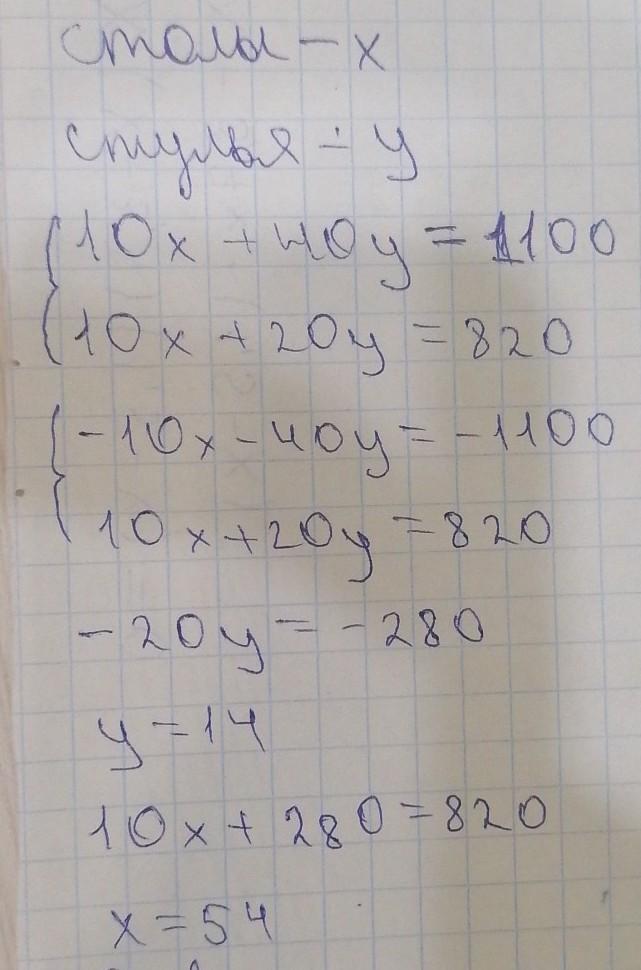 столы - x
стулья - y
10x + 40y = 1100
10x + 20y = 820
-10x - 40y = -1100
10x + 20y = 820
-20y = -280
y = 14
10x + 280 = 820
x = 54